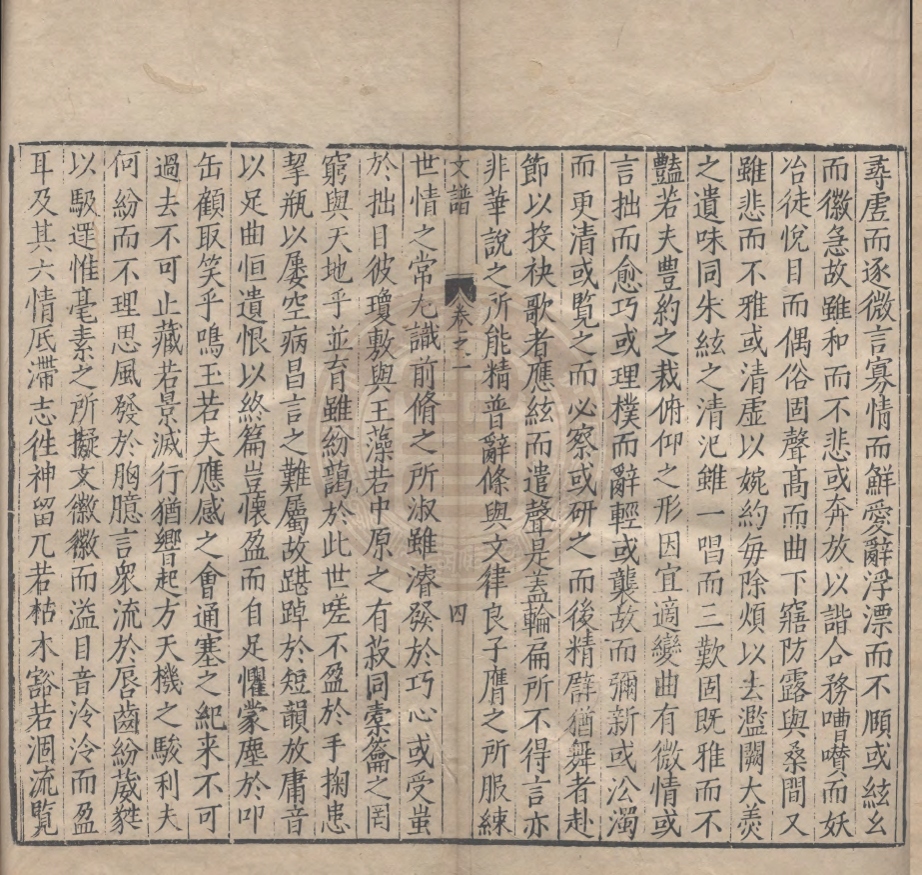 尋虛而逐微言寡情而鮮愛辭浮漂而不願或絃幺
而徽急故雖和而不悲或奔放以諧合務嘈囋而妖
冶徒悅目而偶俗固聲髙而曲下寤防露與桑間又
雖悲而不雅或清虛以婉約毎除煩以去濫闕大羮
之遺味同朱絃之清汜雖一唱而三歎固既雅而不
豔若夫豐約之裁俯仰之形因宜適變曲有微情或
言拙而愈巧或理樸而辭輕或襲故而彌新或㳂濁
而更清或覧之而必察或研之而後精譬猶舞者赴
節以投袂歌者應絃而遣聲是蓋輪扁所不得言亦
非華說之所能精普辭條與文律良子膺之所服練
文譜
卷之一
四
世情之常尤識前脩之所淑雖濬發於巧心或受蚩
於拙目彼瓊敷與王藻若中原之有菽同橐籥之罔
窮與天地乎並育雖紛藹於此世嗟不盈於手掬患
挈瓶以屢空病昌言之難屬故踸踔於短韻放庸音
以足曲恒遺恨以終篇豈懷盈而自足懼蒙塵於叩
缶顧取笑乎鳴玉若夫應感之會通塞之紀来不可
過去不可止藏若景滅行猶響起方天機之駿利夫
何紛而不理思風發於胸臆言衆流於唇齒紛葳㽔
以馺遝惟毫素之所擬文徽徽而溢目音泠泠而盈
耳及其六情厎滯志徃神留兀若枯木豁若涸流覧